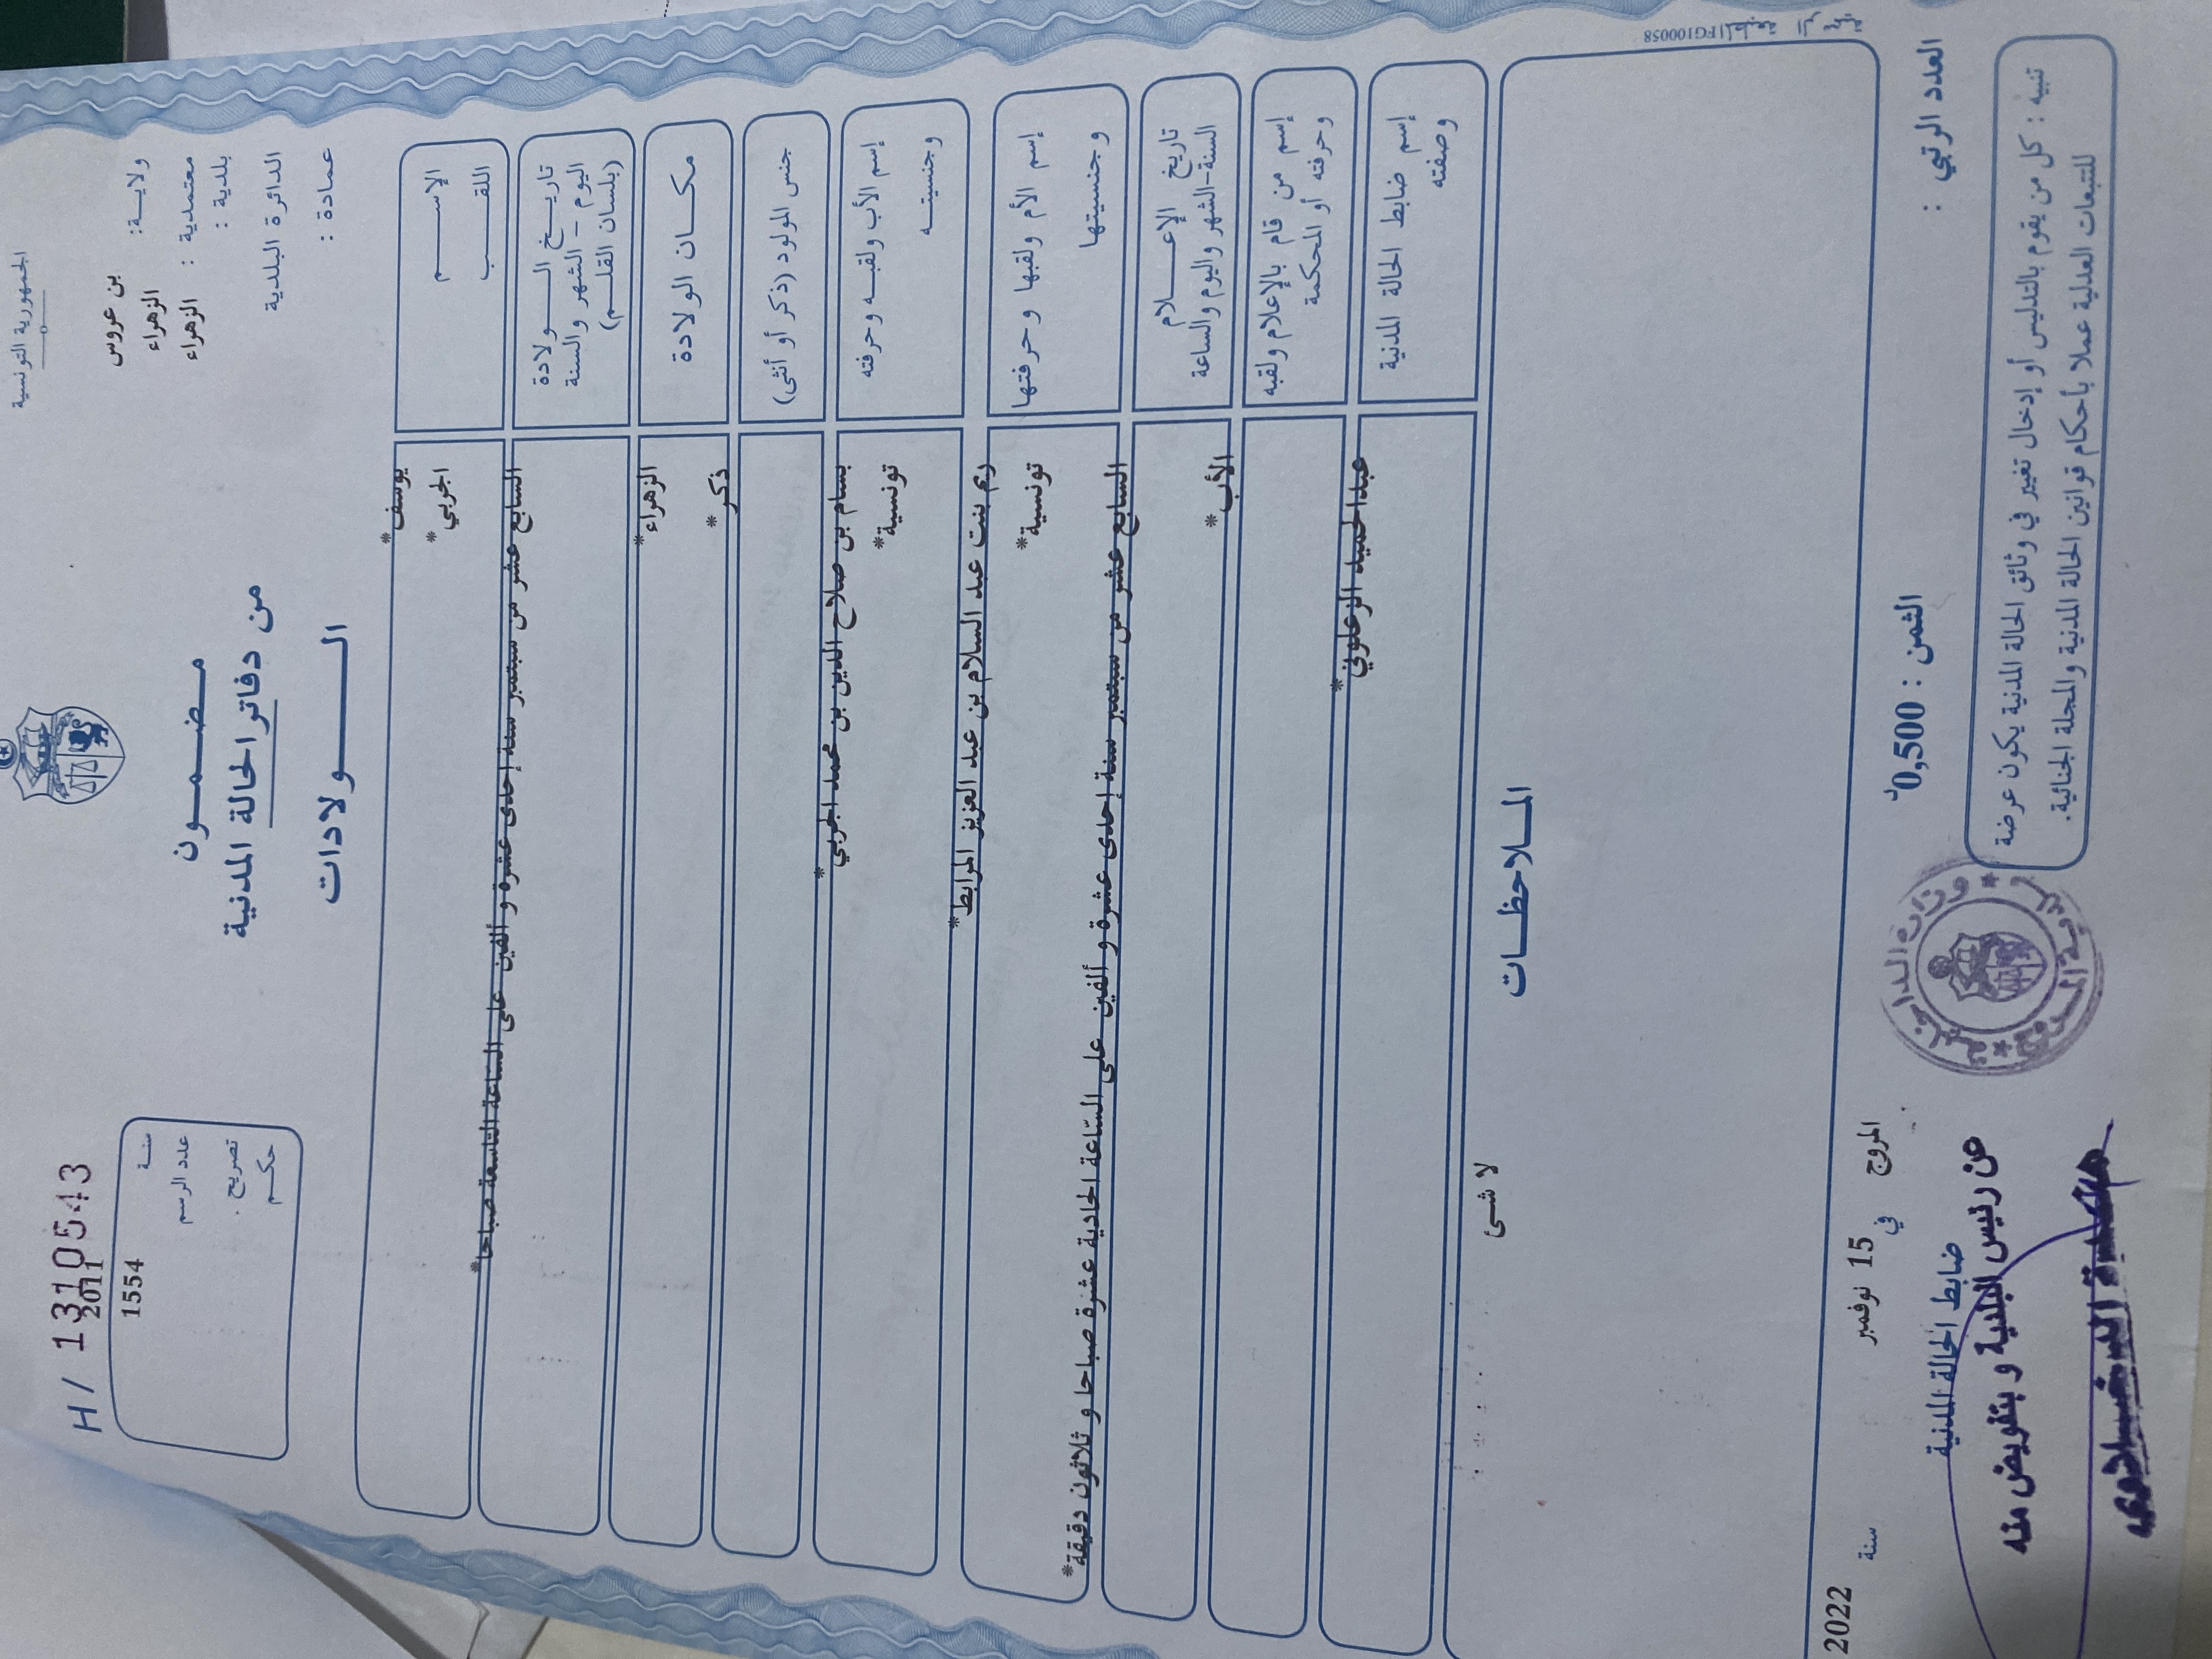 الجمهورية التونسية
ولايـــة: بن عروس
معتمدية : الزهراء
بلدية : الزهراء
الدائرة البلدية
عمادة :
مـضـمـــون
من دفاتر الحالة المدنية
الــــولادات
H/ 1310543
سنـة 2011
عدد الرسم 1554
تصريح
حكـم
الإســــم *يوسف
اللقــــب *الجربي
تاريــخ الـــولادة
اليوم - الشهر والسنة
(بلسان القلـــم)
السابع عشر من سبتمبر سنة إحدى عشرة و ألفين على الساعة التاسعة صباحا*
مكــان الولادة
*الزهراء
جنس المولود (ذكر أو أنثى)
*ذكر
إسم الأب ولقبـه وحرفته
وجنسيتــه
بسام بن صلاح الدين بن محمد الجربي*
*تونسية
إسم الأم ولقبها وحرفتها
وجنسيتها
ريم بنت عبد السلام بن عبد العزيز المرابط*
*تونسية
تاريخ الإعـــلام
السنة-الشهر واليوم والساعة
السابع عشر من سبتمبر سنة إحدى عشرة و ألفين على الساعة الحادية عشرة صباحا و ثلاثون دقيقة*
إسم من قام بالإعلام ولقبه
وحرفته أو المحكمة
*الأب
إسم ضابط الحالة المدنية
وصفته
عبدالحميد الزغلوني*
المــلاحظـــات
لا شئ
المروج في 15 نوفمبر سنة 2022
ضابط الحالة المدنية
عن رئيس البلدية و بتفويض منه
العدد الرتبي :
الثمن : 0,500د
تنبيه : كل من يقوم بالتدليس أو إدخال تغيير في وثائق الحالة المدنية يكون عرضة
للتتبعات العدلية عملا بأحكام قوانين الحالة المدنية والمجلة الجنائية.
FG100058